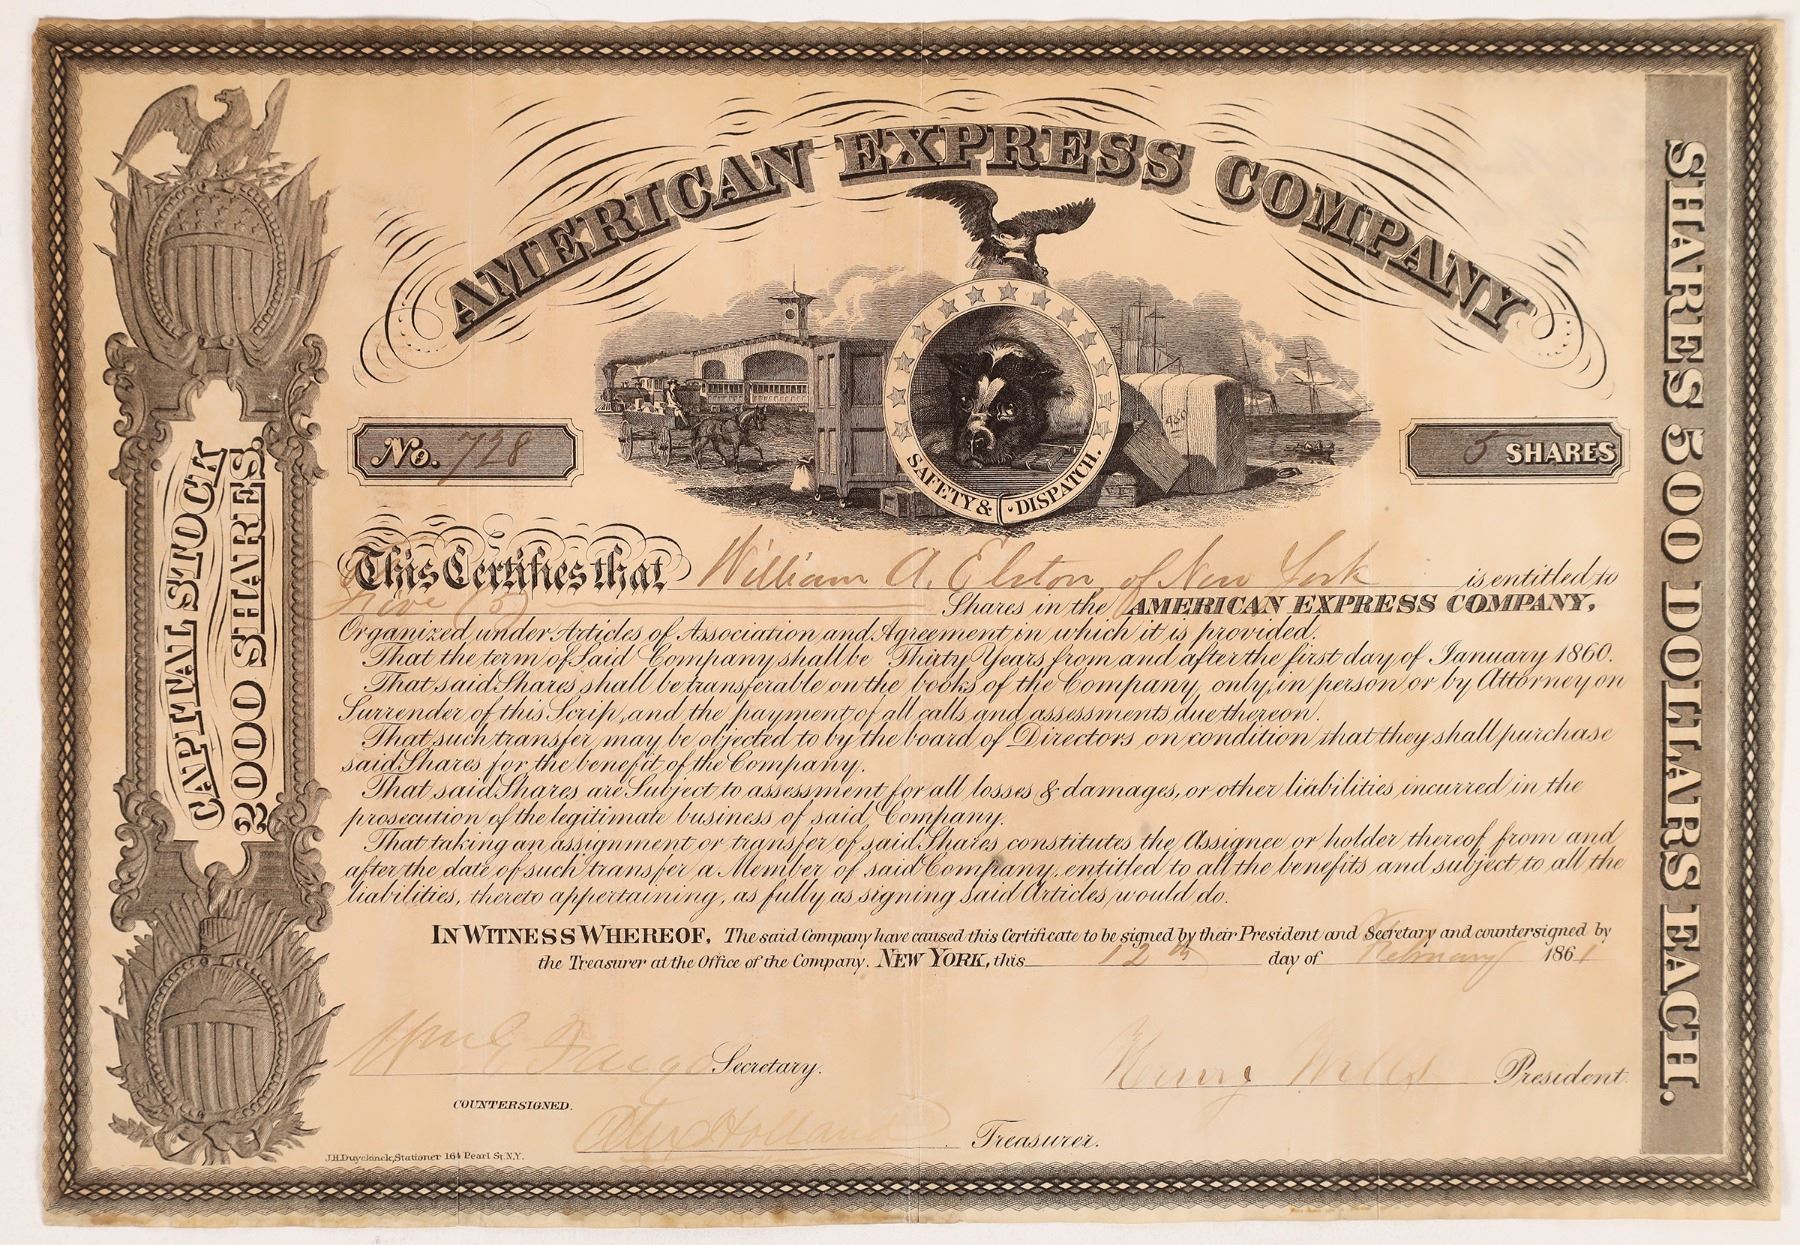 AMERICAN EXPRESS COMPANY
SAFETY & DISPATCH.
No. 728
5 SHARES
CAPITAL STOCK
2000 SHARES.
SHARES 500 DOLLARS EACH.
This Certifies that William A. Elston, of New York is entitled to
Five (5) Shares in the AMERICAN EXPRESS COMPANY,
Organized under Articles of Association and Agreement in which it is provided.
That the term of Said Company shall be Thirty Years from and after the first day of January 1860.
That said Shares shall be transferable on the books of the Company, only, in person or by Attorney on
Surrender of this Scrip, and the payment of all calls and assessments due thereon.
That such transfer may be objected to by the board of Directors on condition that they shall purchase
said Shares for the benefit of the Company.
That said Shares are Subject to assessment for all losses & damages, or other liabilities incurred in the
prosecution of the legitimate business of said Company.
That taking an assignment or transfer of said Shares constitutes the Assignee or holder thereof from and
after the date of such transfer a Member of said Company, entitled to all the benefits and subject to all the
liabilities, thereto appertaining, as fully as signing said Articles would do.
IN WITNESS WHEREOF, The said Company have caused this Certificate to be signed by their President and Secretary and countersigned by
the Treasurer at the Office of the Company, NEW YORK, this 12th day of February 1861
Wm G Fargo Secretary.
Henry Wells President
COUNTERSIGNED.
Alex Holland Treasurer.
J.H. Duyckinck, Stationer 164 Pearl St. N.Y.